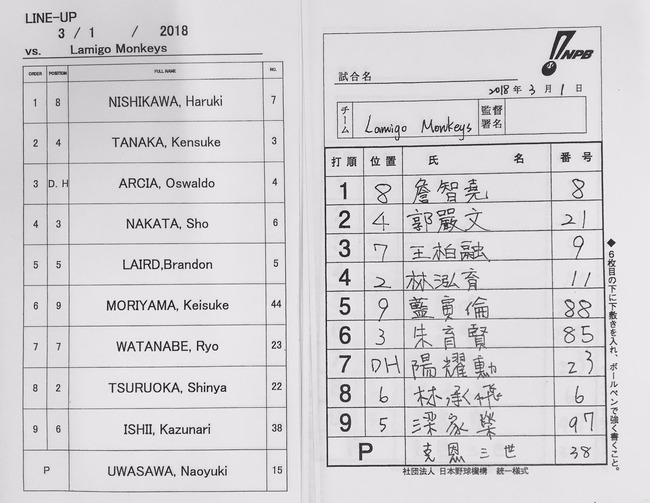 LINE-UP
3 / 1 / 2018
vs. Lamigo Monkeys
ORDER POSITION FULL NAME NO.
1 8 NISHIKAWA, Haruki 7
2 4 TANAKA, Kensuke 3
3 D. H ARCIA, Oswaldo 4
4 3 NAKATA, Sho 6
5 5 LAIRD,Brandon 5
6 9 MORIYAMA, Keisuke 44
7 7 WATANABE, Ryo 23
8 2 TSURUOKA, Shinya 22
9 6 ISHII, Kazunari 38
P UWASAWA, Naoyuki 15
NPB
試合名
2018年3月1日
チーム Lamigo Monkeys 監督署名
打順 位置 氏名 番号
1 8 詹智堯 8
2 4 郭嚴文 21
3 7 王柏融 9
4 2 林泓育 11
5 9 藍寅倫 88
6 3 朱育賢 85
7 DH 陽耀勳 23
8 6 林承飛 6
9 5 梁家榮 97
P 克恩三世 38
社団法人 日本野球機構 統一様式
◆6枚目の下に下敷きを入れ、ボールペンで強く書くこと。